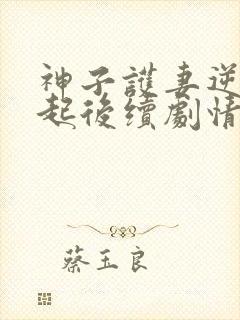 神子護妻逆
起後續劇情
蔡玉良